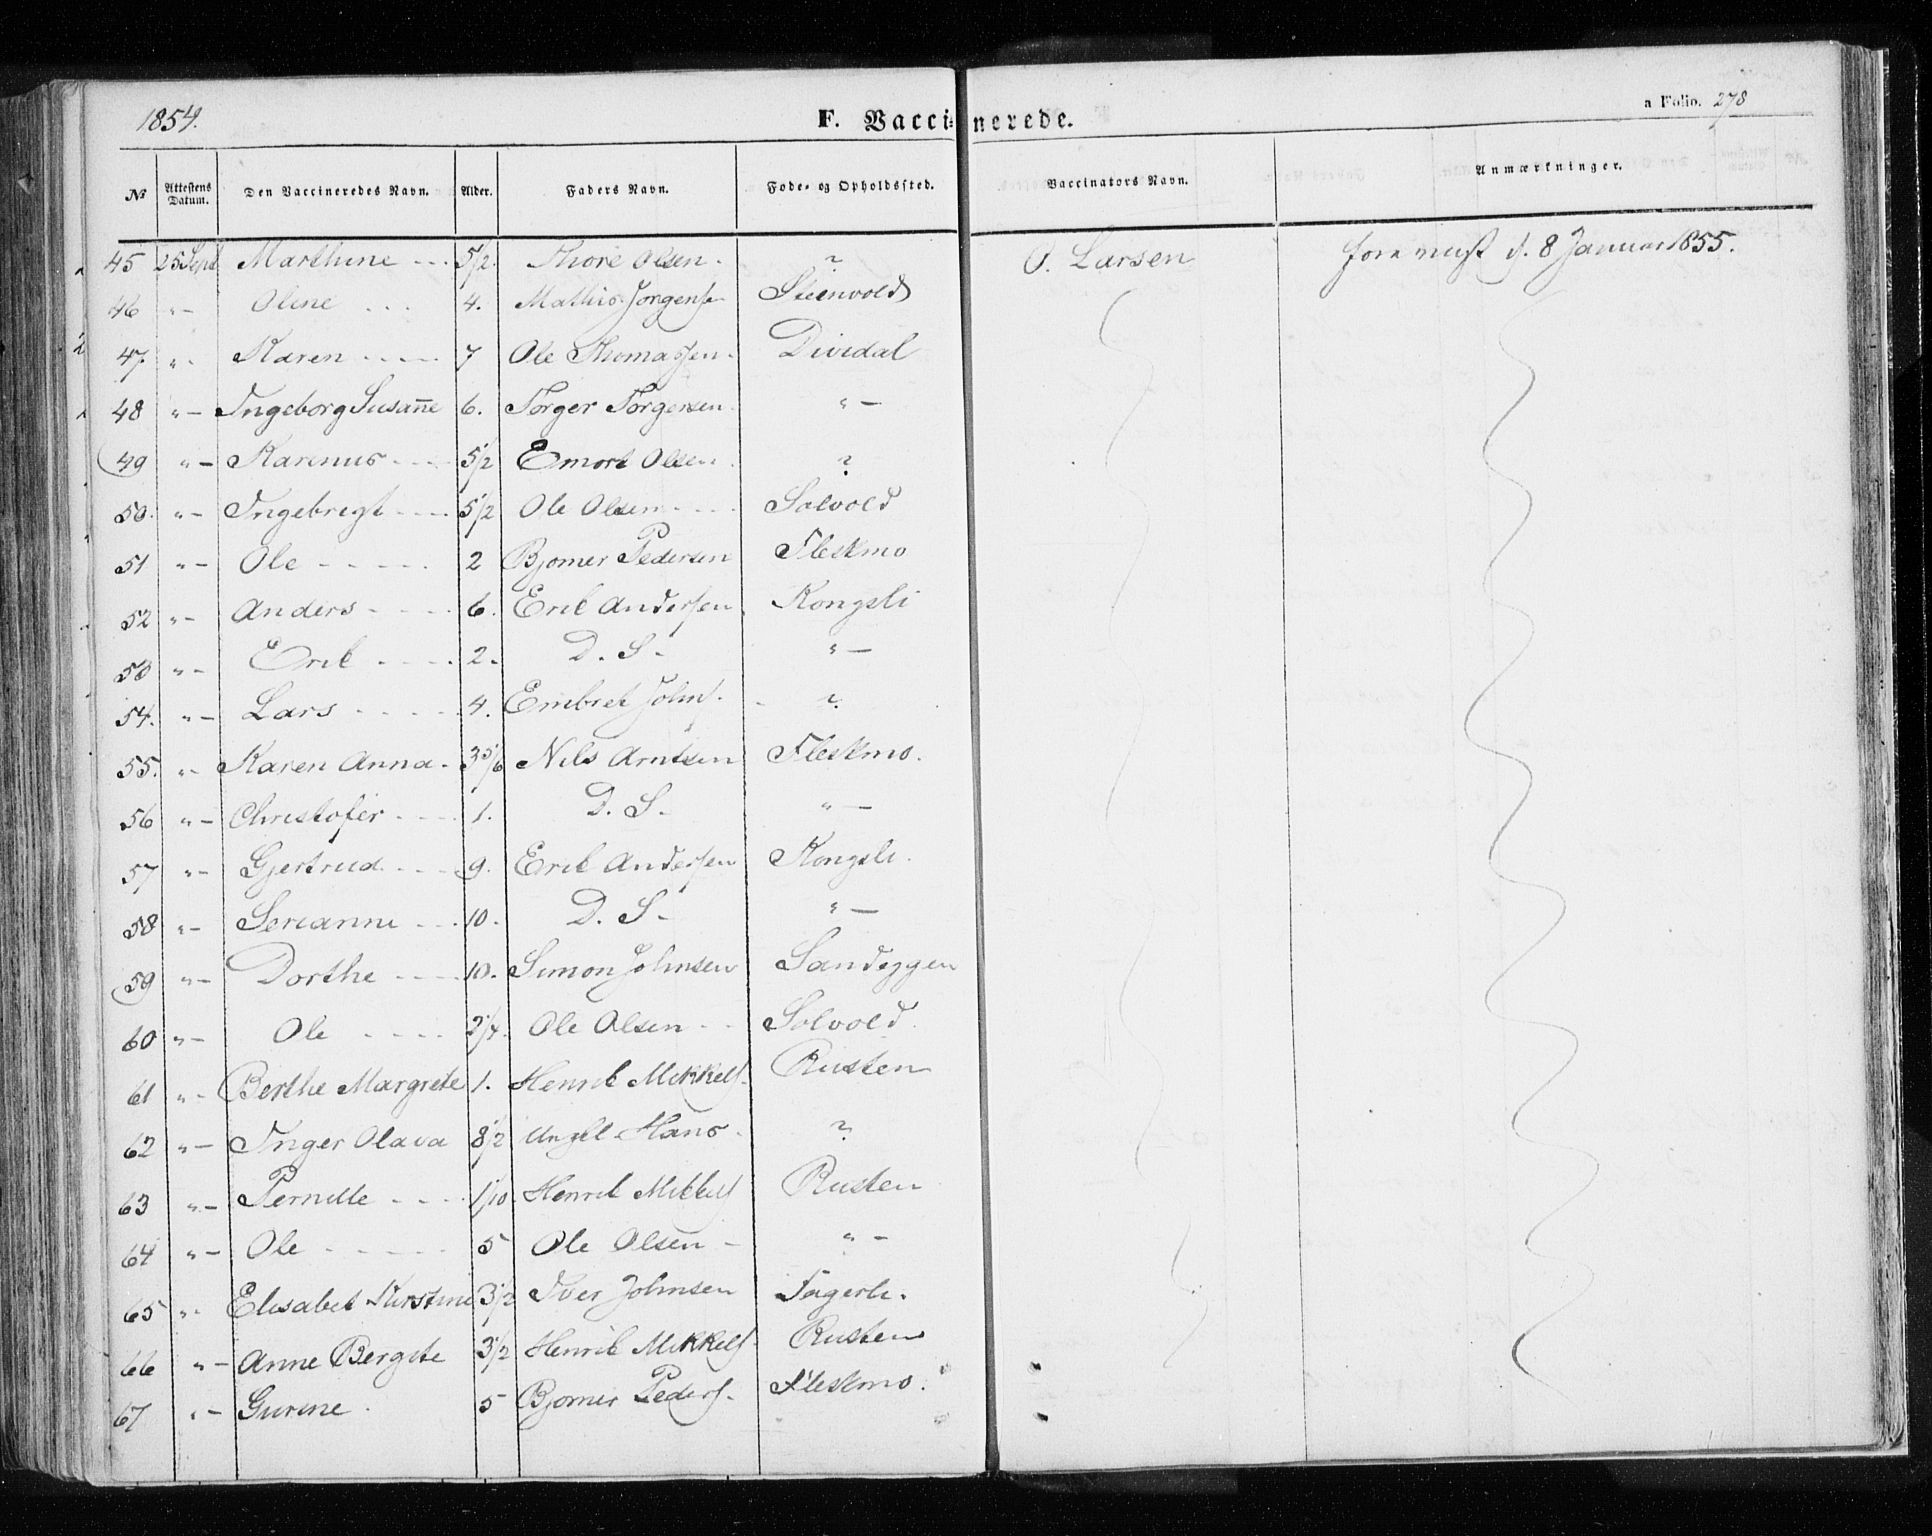 1854. F. Vaccinerede. a Folio. 278
No Attestens Datum. Den Vaccineredes Navn. Alder. Faders Navn. Føde- og Opholdssted. Vaccinators Navn. Anmærkninger.
45 25 Sept Marthine 5/2 Thore Olsen ? O. Larsen d. 8 Januar 1855.
46 "- Oline 4. Mathis Jørgens. Steinvold
47 "- Karen 7 Ole Thomassen Dividal
48 "- Ingeborg Susanne 6. Torger Torgersen "-
49 "- Karenus 5 1/2 Emort Olsen ?
50. "- Ingebregt 5 1/2 Ole Olsen Solvold
51 "- Ole 2 Bjørner Pedersen Fleskmo
52 "- Anders 6. Erik Andersen Kongsli
53 "- Erik 2. D. S. "-
54. "- Lars 4. Embret Johns. ?
55. "- Karen Anna 3 5/6 Nils Arntsen Fleskmo.
56 "- Christofer 1. D. S. "-
57 "- Gjertrud 9. Erik Andersen Kongsli.
58 "- Serianne 10. D. S. "-
59 "- Dorthe 10. Simon Johnsen Sandeggen
60 "- Ole 2 1/4. Ole Olsen Solvold
61 "- Berthe Margrete 1. Henrik Mikkels. Rusten
62 "- Inger Olava 8 1/2 Hans ?
63 "- Pernille 1/10 Henrik Mikkels. Rusten
64 "- Ole 5 Ole Olsen "-
65 "- Elisabet Kirstine 3 1/2 Iver Johnsen Fagerli.
66 "- Anne Bergite 3 1/2 Henrik Mikkels. Rusten
67 "- Gurine 5 Bjørner Peders. Fleskmo.